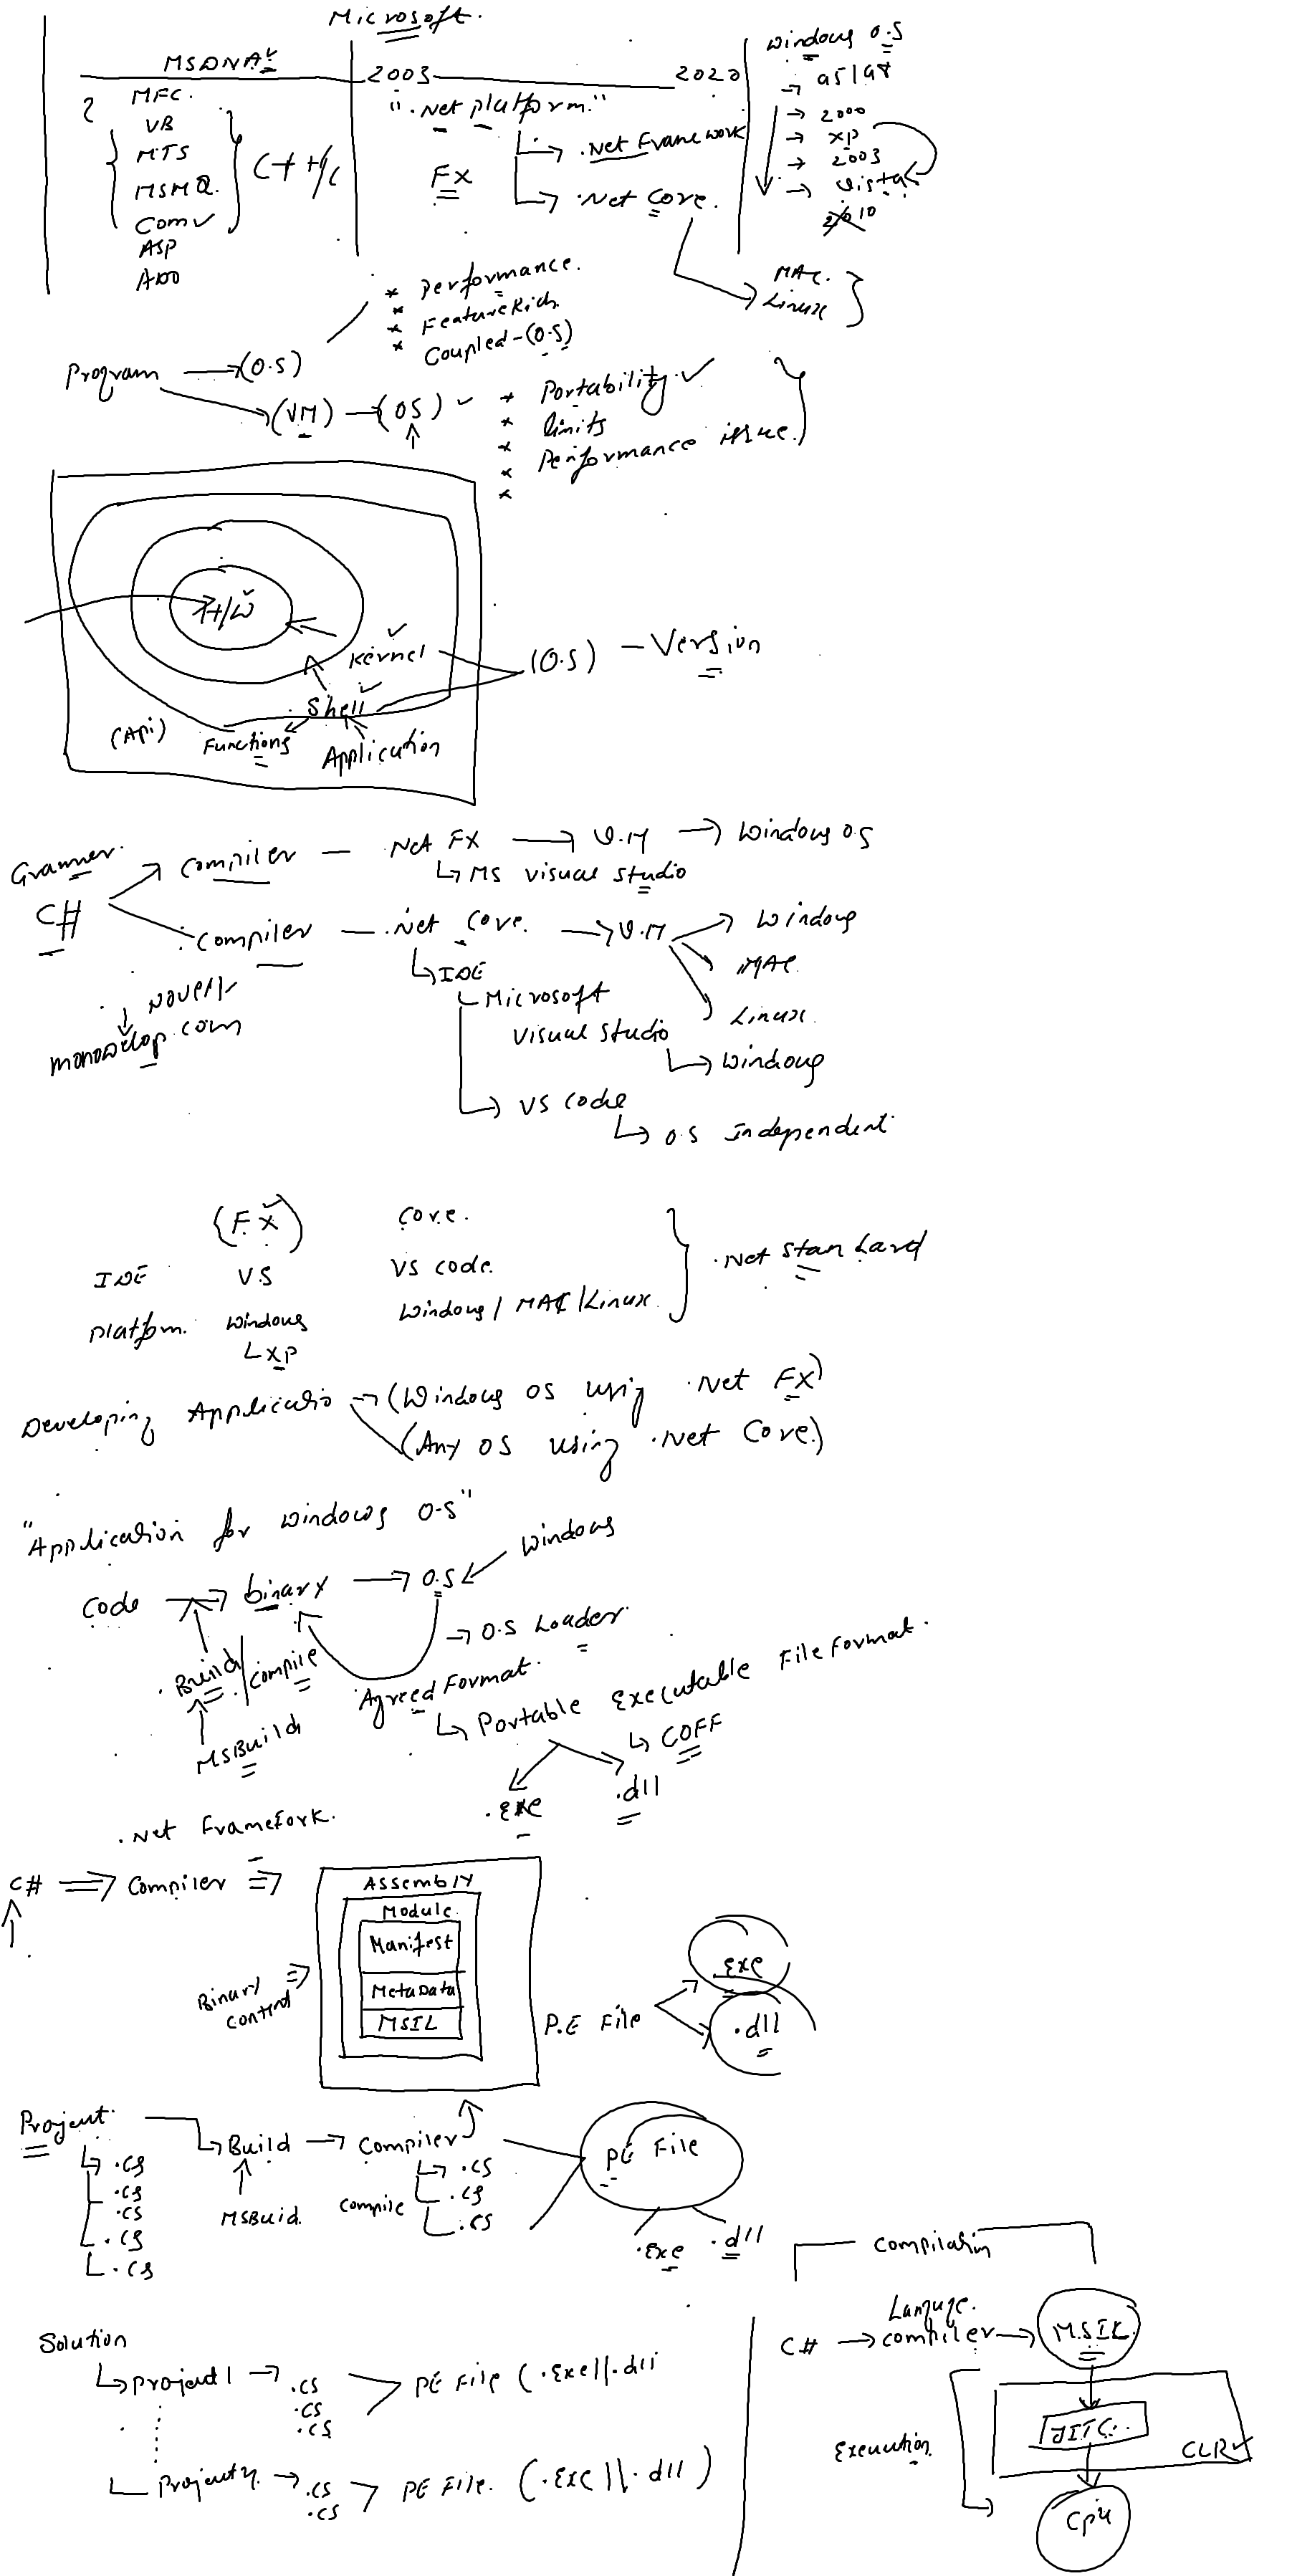 Microsoft.
MSDNA
2003
2020
Windows O.S
95/98
2000
XP
2003
Vista
2010
MFC.
VB
MTS
MSMQ.
Com
ASP
ADO
C++/C
".Net platform."
.Net Framework
.Net Core.
FX
MAC.
Linux
* Performance.
* FeatureRich
* Coupled-(O.S)
Program → (O.S)
(VM) → (OS)
* Portability.
* limits
* Performance issue.
H/W
Kernel
Shell
(O.S) - Version
(Api)
Functions
Application
Grammer.
C#
Compiler - .Net FX → V.M → Windows O.S
MS Visual Studio
Compiler - .Net Core. → V.M
Windows
MAC
Linux.
IDE
Microsoft
Visual Studio
Windows
VS Code
O.S Independent
Novell
monodevelop.com
(FX)
Core.
IDE
VS
VS code.
.Net Standard
Platform.
Windows
Windows/MAC/Linux.
XP
Developing Applicatio → (Windows OS using .Net FX)
(Any OS using .Net Core.)
"Application for windows O.S"
Code → binary → O.S
Windows
→ O.S Loader.
Build/Compile
Agreed Format.
Portable Executable FileFormat.
COFF
MSBuild
.exe
.dll
.Net Framework.
C# ⇒ Compiler ⇒
Assembly
Module.
Manifest
MetaData
MSIL
Binary
P.E File
.exe
.dll
Project.
.cs
.cs
.cs
.cs
.cs
Build → Compiler
MSBuid.
Compile
.cs
.cs
.cs
PE File
.exe
.dll
Solution
Project1 → .cs
.cs
.cs
PE File (.exe||.dll
Projectn. → .cs
.cs
PE File. (.exe||.dll)
Compilation
Languge.
C# → compiler → MSIL.
Execution
JITC..
CLR
CPU